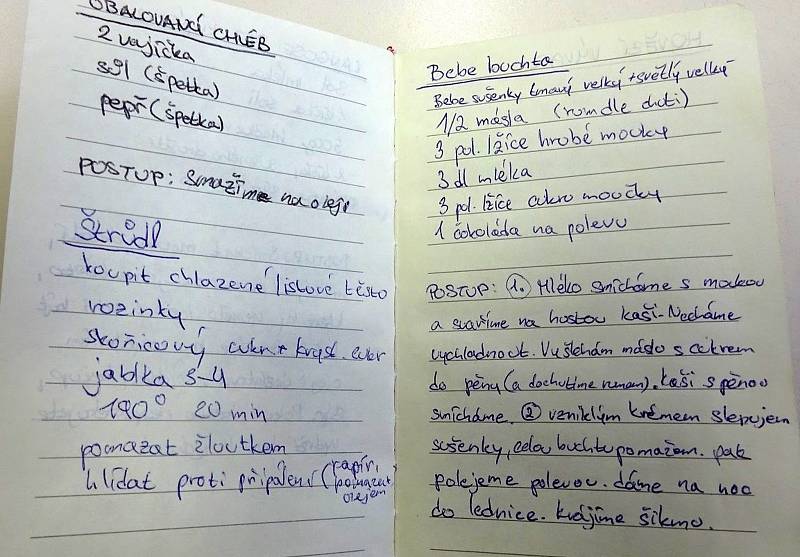 OBALOVANCÍ CHLÉB
2 vajíčka
sůl (špetka)
pepř (špetka)
POSTUP: Smažíme na oleji
Štrůdl
koupit chlazené listové těsto
rozinky
skořicový cukr + kryst. cukr
jablka 3-4
190° 20 min
pomazat žloutkem
hlídat proti připálení (papír,
pomazat
olejem
Bebe buchta
Bebe sušenky tmavý velký + světlý velký
1/2 másla (rum dle chuti)
3 pol. lžíce hrubé mouky
3 dl mléka
3 pol. lžíce cukro moučky
1 čokoláda na polevu
POSTUP: 1. Mléko smícháme s moukou
a svaříme na hustou kaši. Necháme
vychladnout. Vyšlehám máslo s cukrem
do pěny (a dochutíme rumem). Kaši s pěnou
smícháme. 2 vzniklým krémem slepujem
sušenky, celou buchtu pomažem. pak
polejeme polevou. dáme na noc
do lednice. krájíme šikmo.